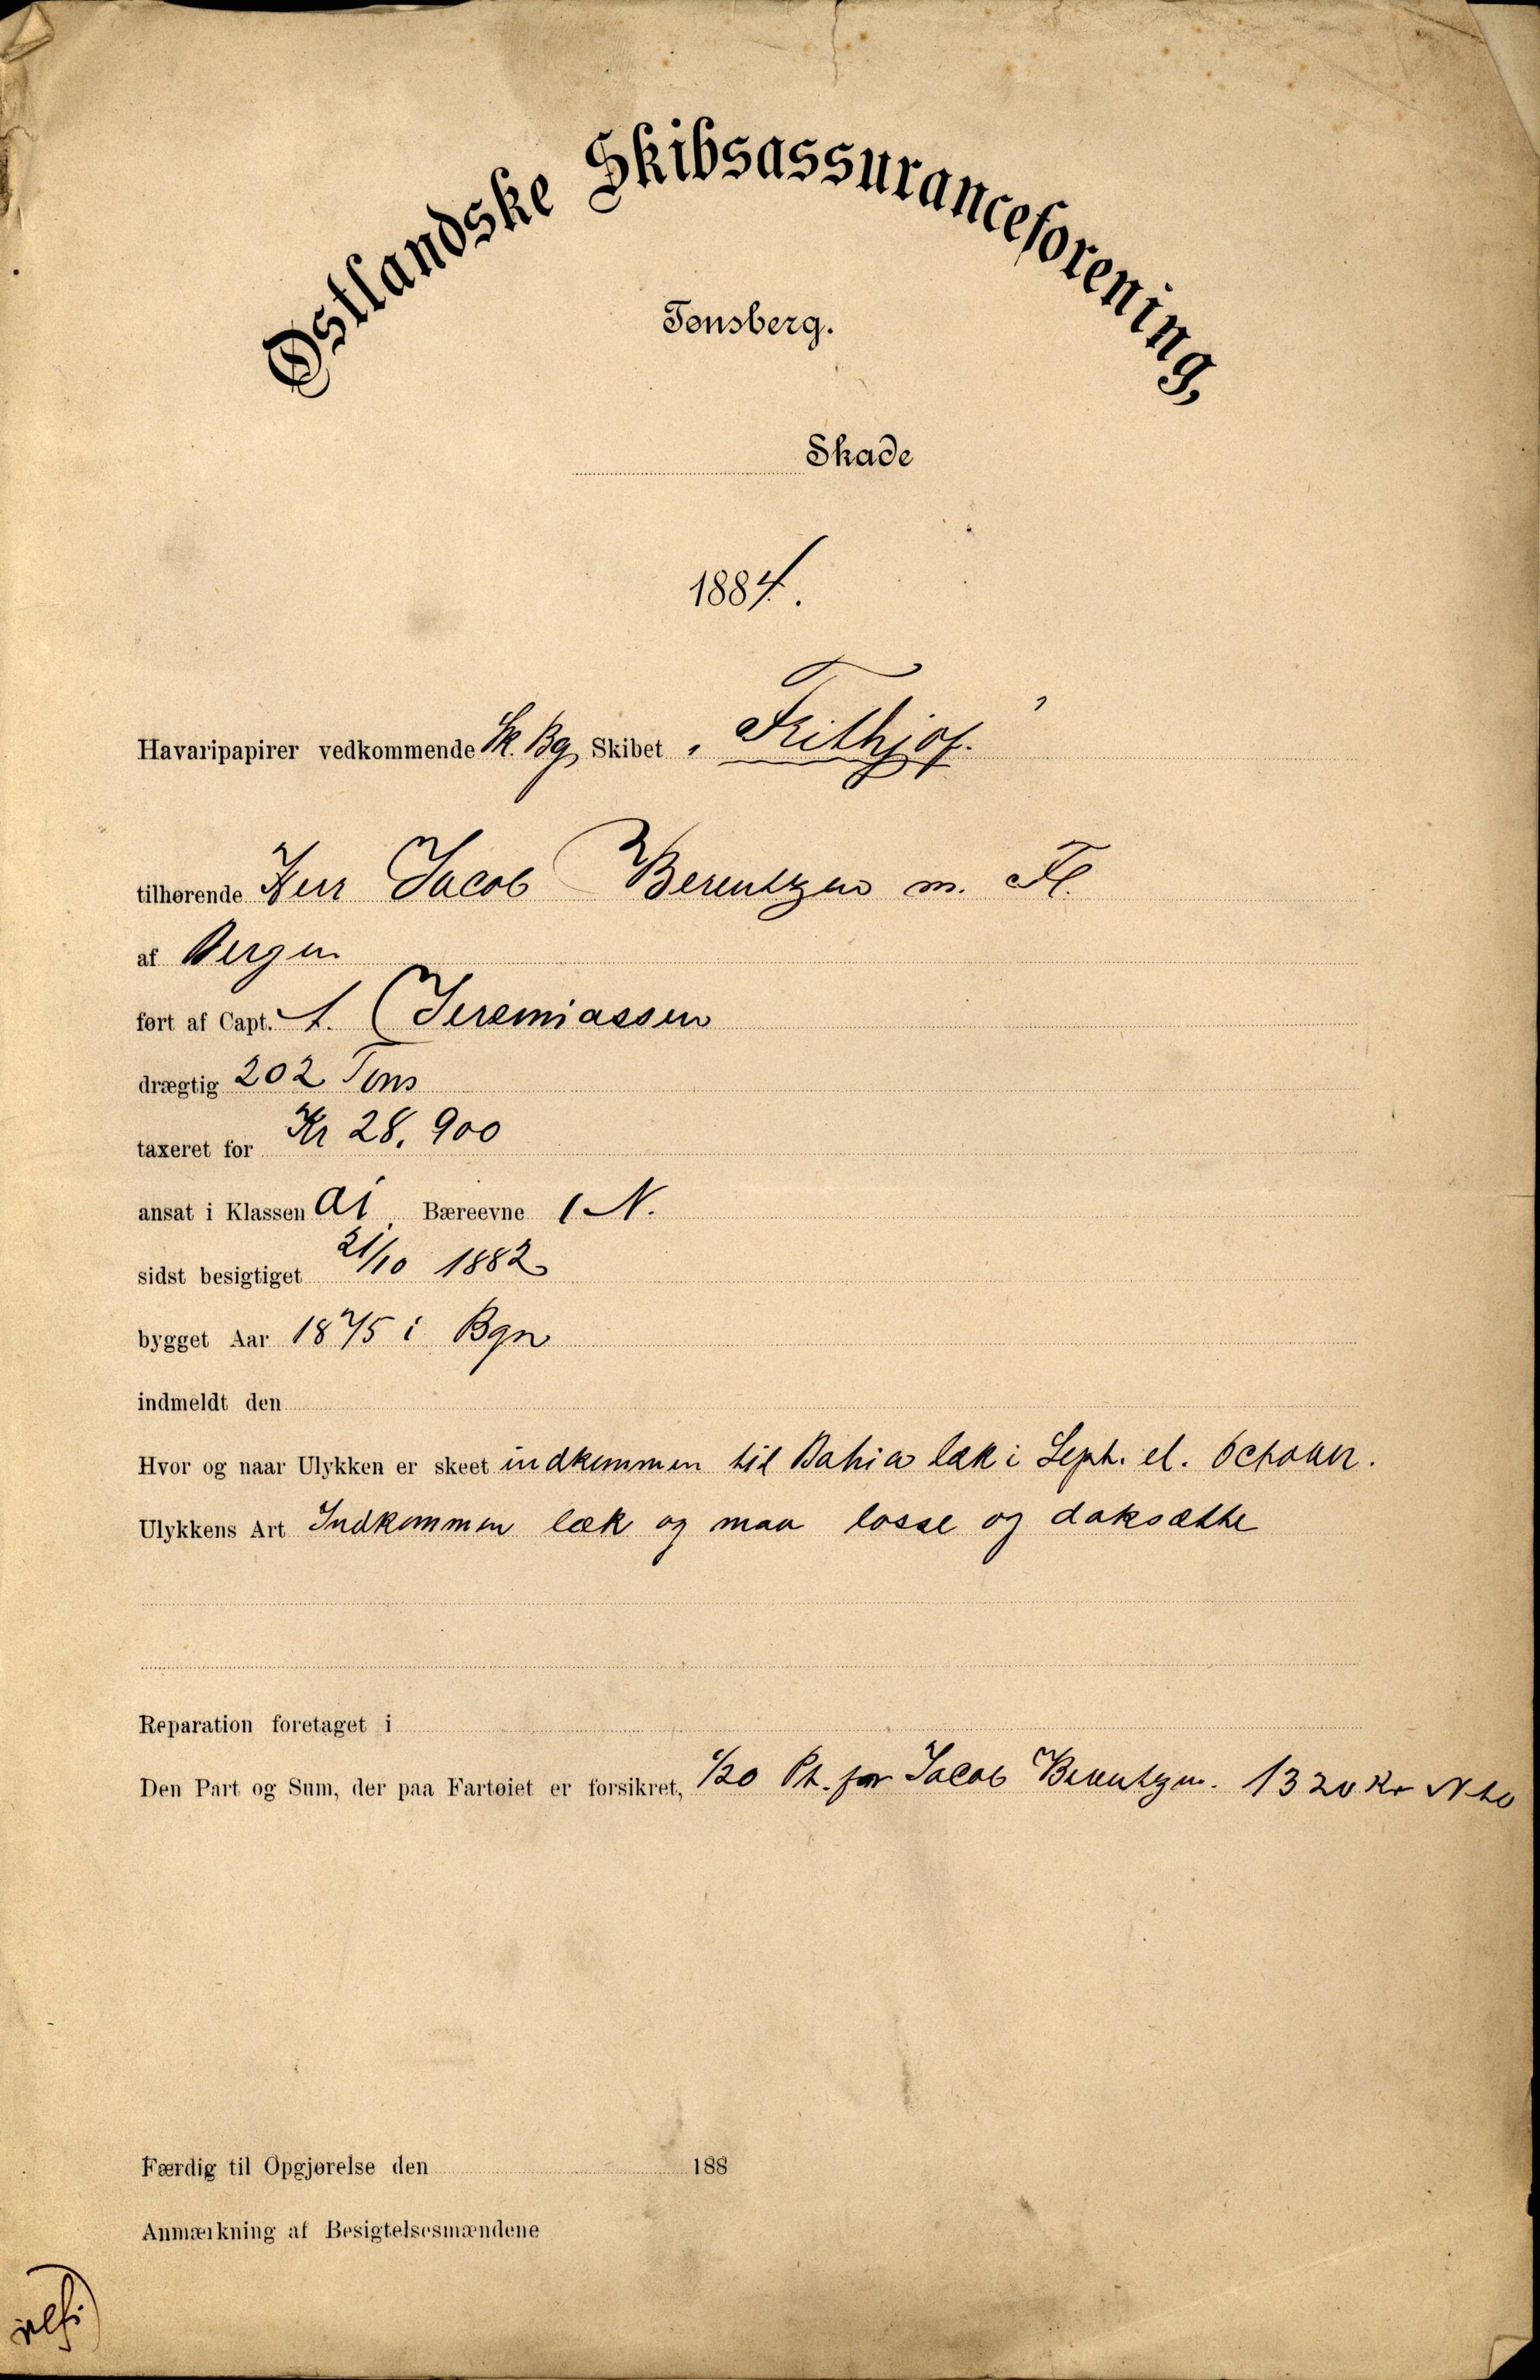 Østlandske Skibsassuranceforening,
Tønsberg.
Skade
1884.
Havaripapirer vedkommende Sk. Bg Skibet „Frithjof."
tilhørende Herr Jacob Berentzen m. Fl.
af Bergen
ført af Capt. A. Jeremiassen
drægtig 202 Tons
taxeret for Kr 28,900
ansat i Klassen A1 Bæreevne 1 N.
sidst besigtiget 21/10 1882
bygget Aar 1875 i Bgn
indmeldt den
Hvor og naar Ulykken er skeet indkommen til Bahia læk i Sept. el. October.
Ulykkens Art Indkommen læk og maa losse og doksætte
Reparation foretaget i
Den Part og Sum, der paa Fartøiet er forsikret, 1/20 Pt. for Jacob Berentzen. 1320 Kr Nto
Færdig til Opgjørelse den 188
Anmærkning af Besigtelsesmændene